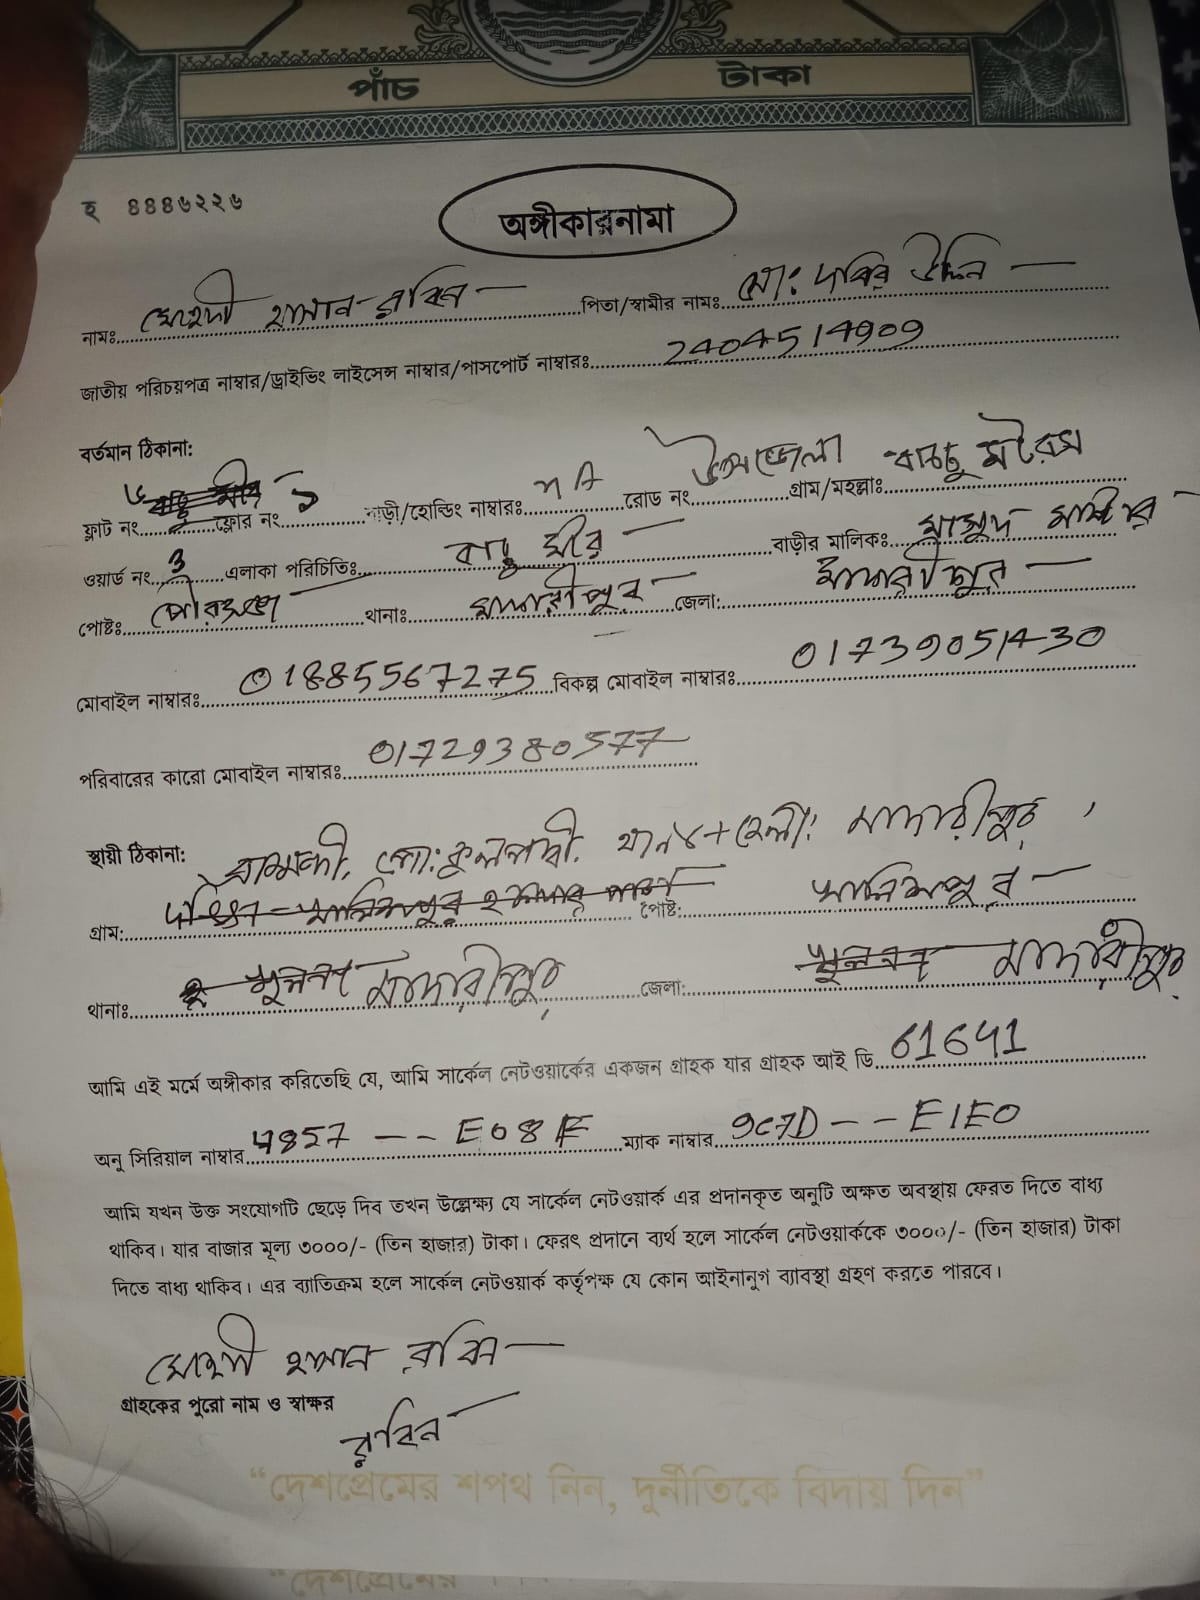 পাঁচ টাকা
হ ৪৪৪৬২২৬
অঙ্গীকারনামা
নামঃ মেহেদী হাসান রবিন পিতা/স্বামীর নামঃ মো: দবির উদ্দিন
জাতীয় পরিচয়পত্র নাম্বার/ড্রাইভিং লাইসেন্স নাম্বার/পাসপোর্ট নাম্বারঃ 2404514909
বর্তমান ঠিকানা:
ফ্লাট নং ফ্লোর নং বাড়ী/হোল্ডিং নাম্বারঃ NA রোড নং উপজেলা গ্রাম/মহল্লাঃ
ওয়ার্ড নং 3 এলাকা পরিচিতিঃ বাড়ীর মালিকঃ মাসুদ
পোষ্টঃ থানাঃ মাদারীপুর জেলা: মাদারীপুর
মোবাইল নাম্বারঃ 01885567275 বিকল্প মোবাইল নাম্বারঃ 01739051430
পরিবারের কারো মোবাইল নাম্বারঃ 01729380577
স্থায়ী ঠিকানা: পো: কুলপদ্দী. থানা + জেলা: মাদারীপুর
গ্রাম: পোষ্ট: খালিশপুর
থানাঃ মাদারীপুর জেলা: মাদারীপুর
আমি এই মর্মে অঙ্গীকার করিতেছি যে, আমি সার্কেল নেটওয়ার্কের একজন গ্রাহক যার গ্রাহক আই ডি 61641
অনু সিরিয়াল নাম্বার 4857 -- E08F ম্যাক নাম্বার 9C7D -- E1E0
আমি যখন উক্ত সংযোগটি ছেড়ে দিব তখন উল্লেক্ষ্য যে সার্কেল নেটওয়ার্ক এর প্রদানকৃত অনুটি অক্ষত অবস্থায় ফেরত দিতে বাধ্য
থাকিব। যার বাজার মূল্য ৩০০০/- (তিন হাজার) টাকা। ফেরৎ প্রদানে ব্যর্থ হলে সার্কেল নেটওয়ার্ককে ৩০০০/- (তিন হাজার) টাকা
দিতে বাধ্য থাকিব। এর ব্যাতিক্রম হলে সার্কেল নেটওয়ার্ক কর্তৃপক্ষ যে কোন আইনানুগ ব্যাবস্থা গ্রহণ করতে পারবে।
মেহেদী হাসান রবিন
গ্রাহকের পুরো নাম ও স্বাক্ষর
রবিন
“দেশপ্রেমের শপথ নিন, দুর্নীতিকে বিদায় দিন”
“দেশপ্রেমের